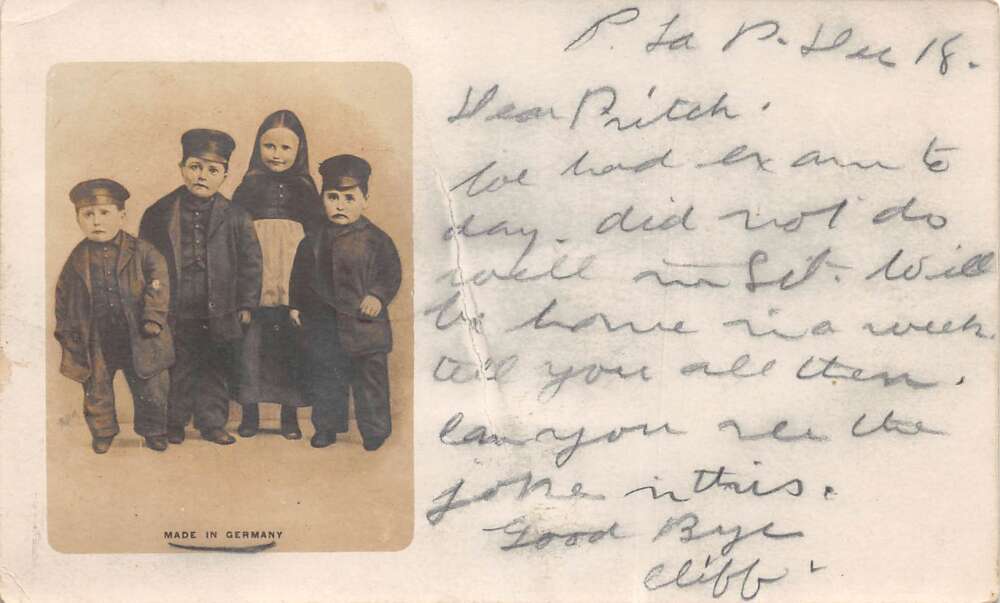 P. La P. Dec 18.
Dear Pritch.
We had exam to
day. did not do
well in Lit. Will
be home in a week
tell you all then.
Can you see the
joke in this.
Good Bye
Cliff
MADE IN GERMANY